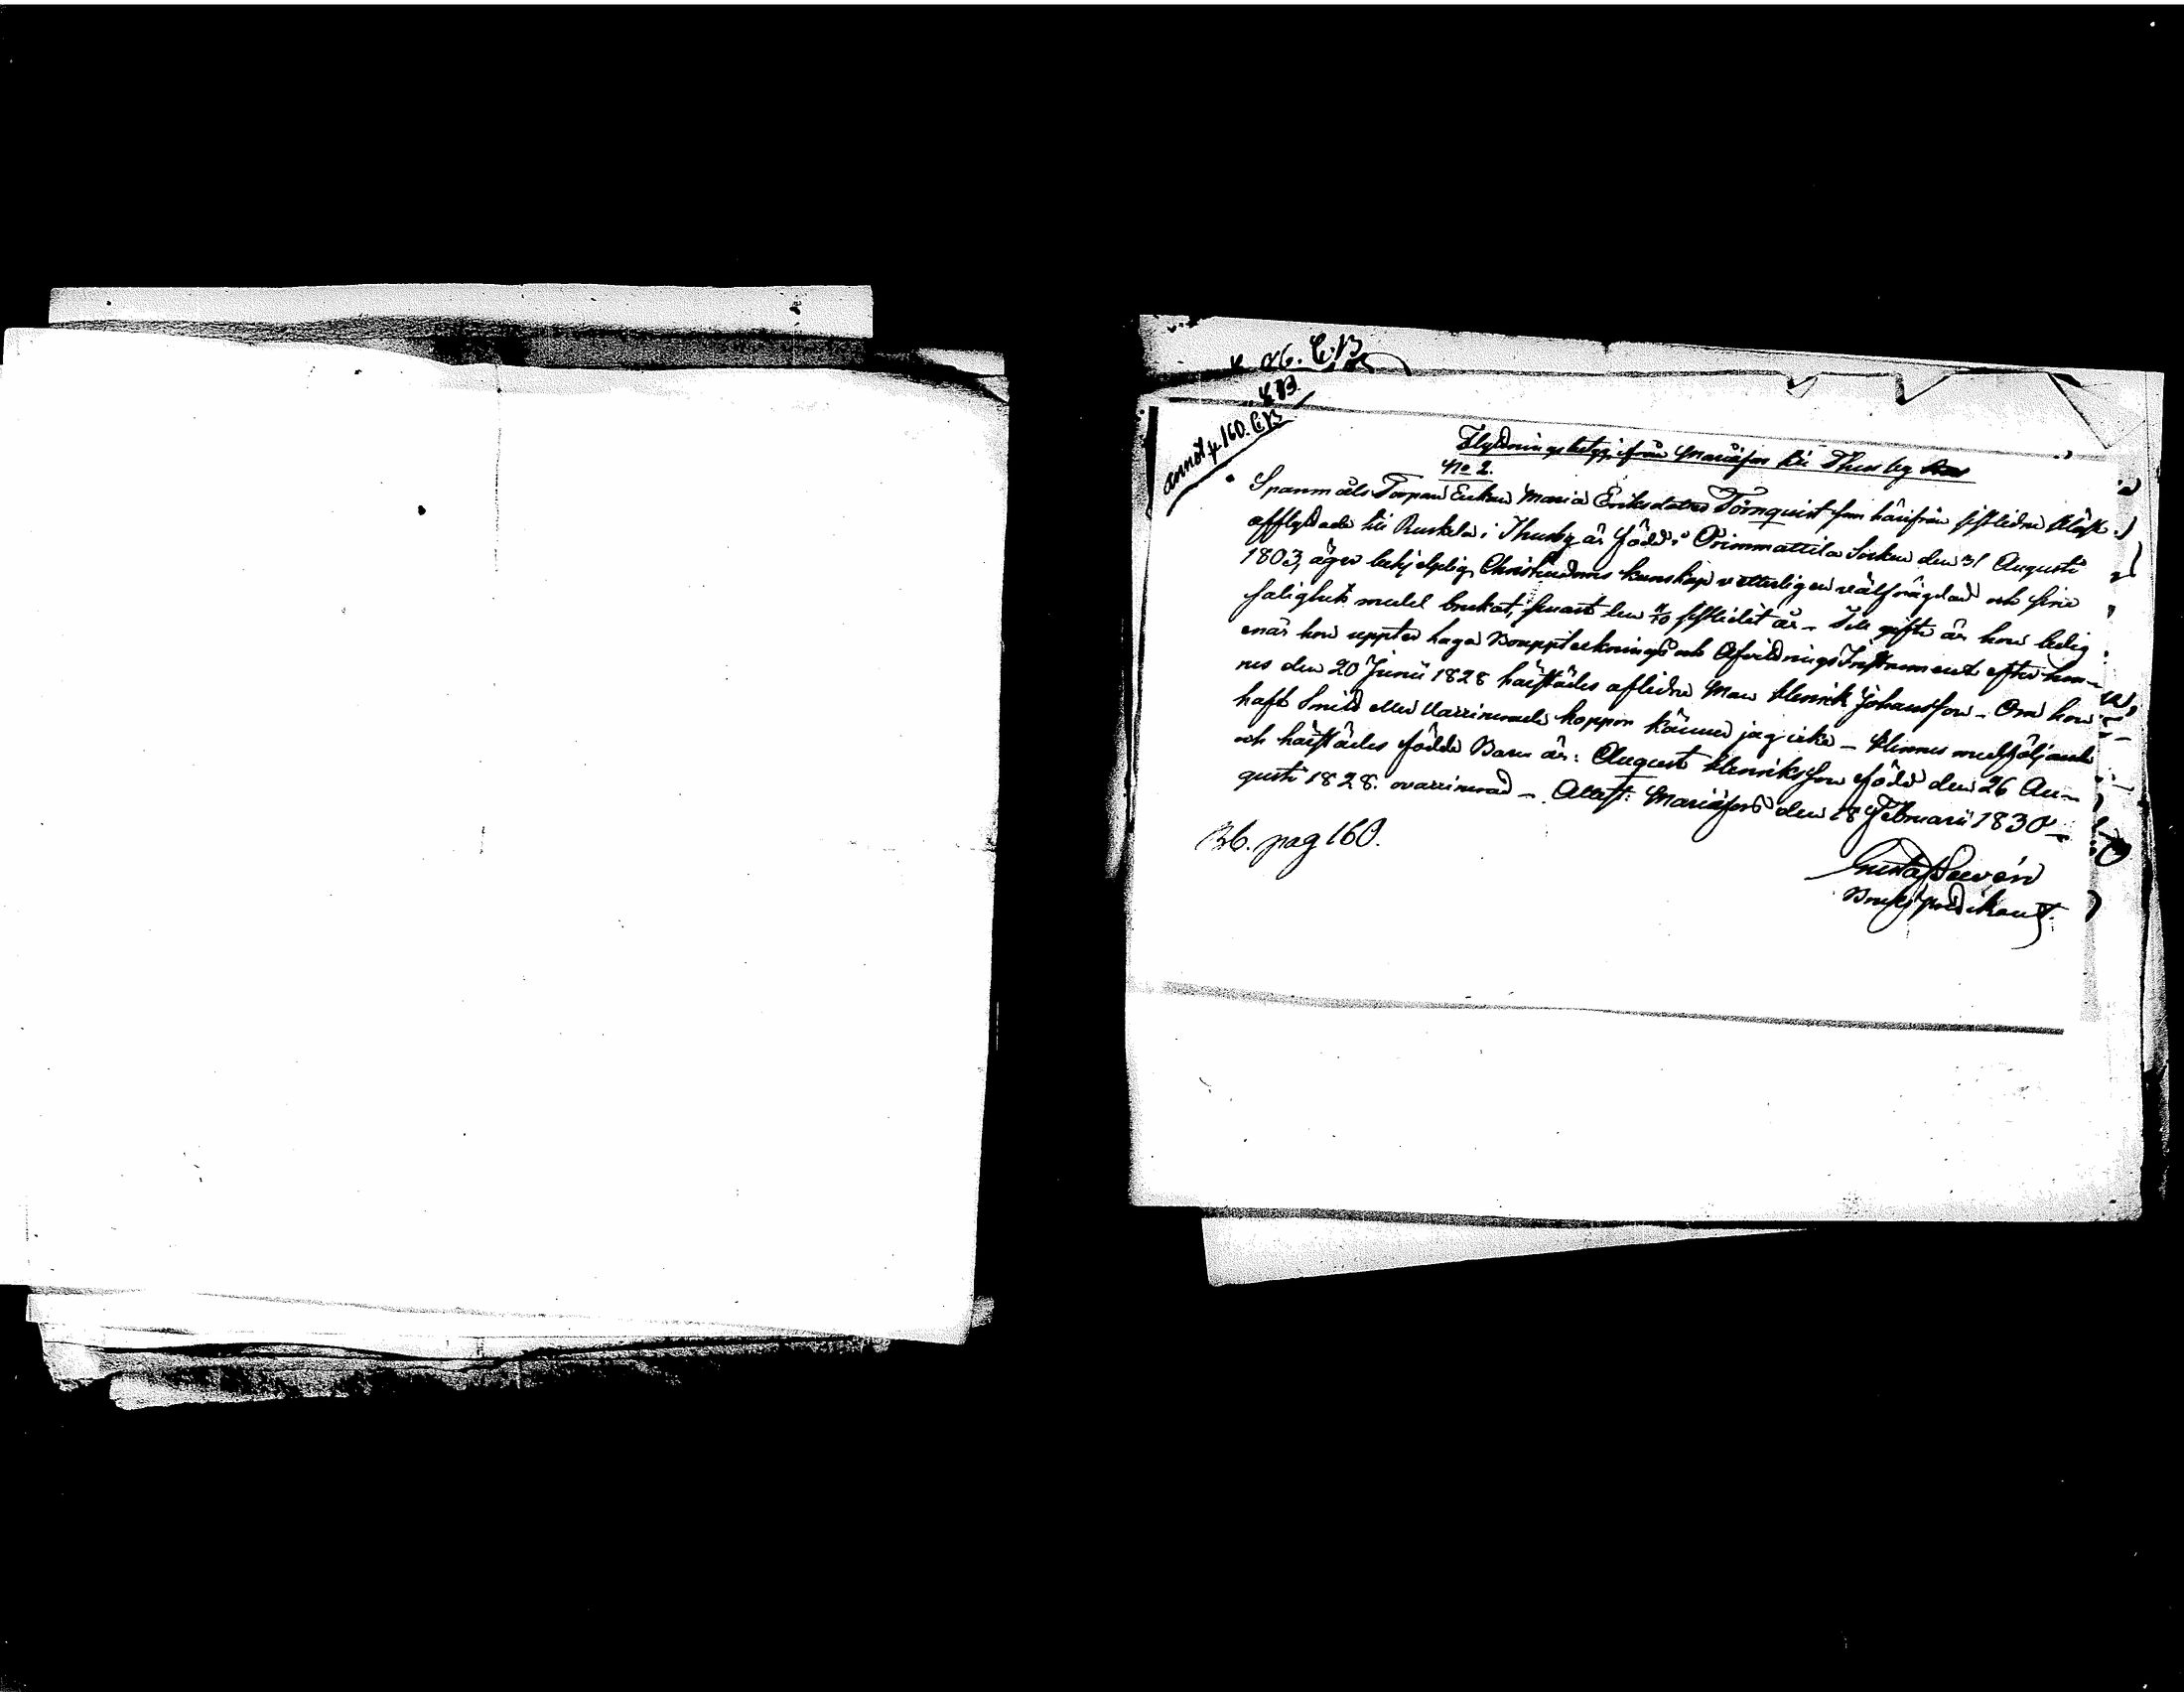 annot p. 160. C.B
Flyttningsbetyg ifrån Mariæfors till Thusby
No 2.
Spanmåls Torpare Enkan Maria Eriksdotter Törnquist som härifrån sistledne Höst
afflyttade till Ruskela i Thusby är född i Orimmattila Socken den 31 Augusti
1803, äger behjelplig Christendoms kunskap vetterligen välfrägdad och sine
salighets medel brukat, senast den sistledit år – Till gifte är hon ledig
enär hon uppter laga Bouppteckning och Afvittrings Instrument efter hen-
nes den 20 Junii 1828 härstädes aflidne Man Henrik Johansson – Om hon
haft Smitt eller Vaccinerade koppor känner jag icke – Hennes medföljande
och härstädes födde Barn är: August Henriksson född den 26 Au-
gusti 1828. ovaccinerad – Attest: Mariæfors den 18 Februarii 1830 –
B6. pag 160.
Gustaf
Bruks predikant.